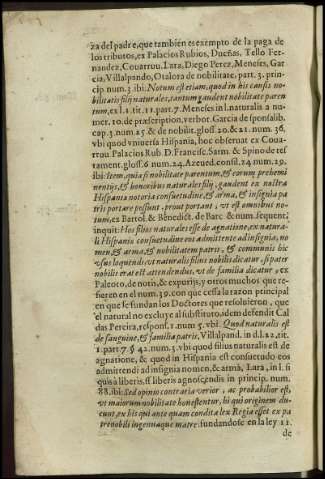 za del padre, que tambien es exempto de la paga de
los tributos, ex Palacios Rubios, Dueñas, Tello Fer-
nandez, Couarruu. Lara, Diego Perez, Meneses, Gar
cia, Villalpando, Otalora de nobilitate, part. 3. prin-
cip. num. 3. ibi: Notum est etiam, quod in his causis no-
bilitatis filij naturales, tantum gaudent nobilitate paren
tum, ex l. 1. tit. 11. part. 7. Meneses in l. naturalis a nu-
mer. 10. de præscription. verbor. Garcia de sponsalib.
cap. 3. num. 25. & de nobilit. gloss. 20. & 21. num. 36.
vbi quod vniuersa Hispania, hoc obseruat ex Coua-
rruu. Palacios Rub. D. Francisc. Sarm. & Spino de tes
tament. gloss. 6. num. 24. Azeued. consil. 24. num. 29.
ibi: Item, quia si nobilitate parentum, & eorum prehemi
nentijs, & honoribus naturales filij, gaudent ex nostra
Hispania notoria consuetudine, & arma, & insignia pa
tris portare possunt, prout portant; vt est omnibus no-
tum, ex Bartol. & Benedict. de Barc. & num. sequent.
inquit: Hos filios naturales esse de agnatione, ex natura-
li Hispania consuetudine eos admittente ad insignia, no
men, & arma, & nobilitatem patris, & communis hic
vsus loquendi, vt naturalis filius nobilis dicatur, si pater
nobilis erat est attendendus, vt de familia dicatur, ex
Paleoto, de notis, & expurijs, y otros muchos que re-
fieren en el num. 39. con que cessa la razon principal
en que se fundan los Doctores que resoluieron, que
el natural no excluye al substituto, idem defendit Cal
das Pereira, respons. 1. num. 5. vbi: Quod naturalis est
de sanguine, & familia patris, Villalpand. in d. l. 22. tit.
1. part. 7. § 42. num. 3. vbi quod filius naturalis est de
agnatione, & quod in Hispania est consuetudo eos
admittendi ad insignia nomen, & arma, Lara, in l. si
quis à liberis, ff. liberis agnoscendis in princip. num.
88. ibi: Sed opinio contraria verior, ac probabilior est,
vt maiorum nobilitate honestentur, hi qui originem du-
cunt, ex his qui ante quam condita lex Regia esset ex pa
tre nobili ingenuaque matre: fundandose en la ley 11.
de